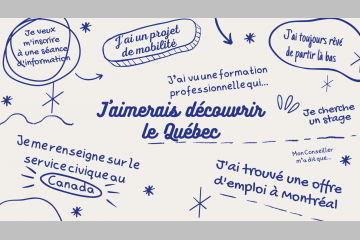 Je veux
m'inscrire
à une séance
d'information
J'ai un projet
de mobilité
J'ai toujours rêvé
de partir là bas
J'ai vu une formation
professionnelle qui...
J'aimerais découvrir
le Québec
Je cherche
un stage
Je me renseigne sur le
service civique au
Canada
Mon Conseiller
m'a dit que...
J'ai trouvé une offre
d'emploi à Montréal